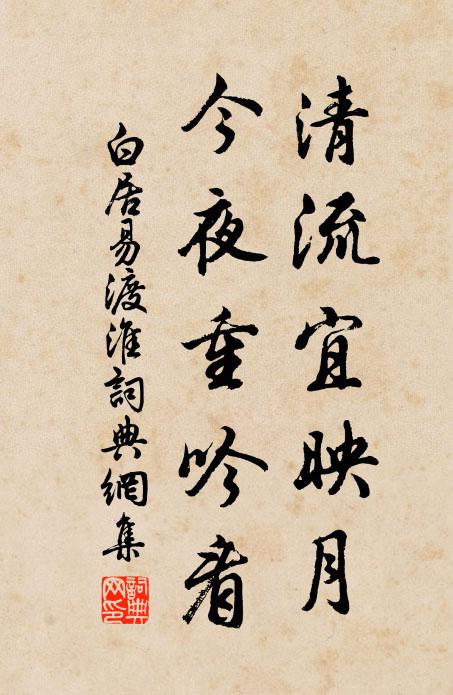 清流宜映月
今夜重吟看
白居易渡淮詞典網集
詞典網印